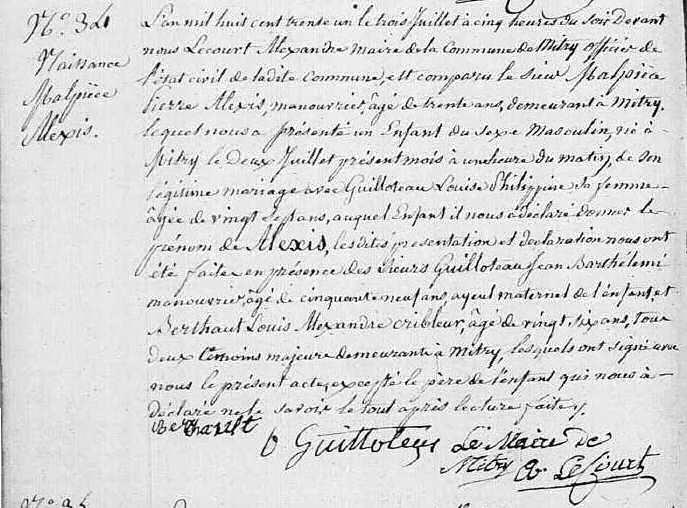 N.° 34
Naissance
Malpièce
Alexis.
L'an mil huit cent trente un le trois Juillet à cinq heures du soir Devant
nous Lecourt Alexandre Maire de la Commune de Mitry officier de
l'état civil de ladite Commune, est comparu le sieur Malpièce
Pierre Alexis, manouvrier, âgé de trente ans, demeurant à Mitry,
lequel nous a présenté un Enfant du Sexe Masculin, né à
Mitry le Deux Juillet présent mois à une heure du matin, de son
légitime mariage avec Guilloteau Louise Philippine sa femme
âgée de vingt sept ans, auquel Enfant il nous a déclaré donner le
prénom de Alexis, les dites présentation et déclaration nous ont
été faites en présence des Sieurs Guilloteau Jean Barthélemi
manouvrier, âgé de cinquante neuf ans, ayeul maternel de l'enfant, et
Berthaut Louis Alexandre cribleur, âgé de vingt six ans, tous
deux témoins majeurs demeurants à Mitry, lesquels ont signé avec
nous le présent acte, excepté le père de l'enfant qui nous à
déclaré ne le savoir le tout après lecture faite.
Berthault
Guilloteau Le Maire de
Mitry Lecourt